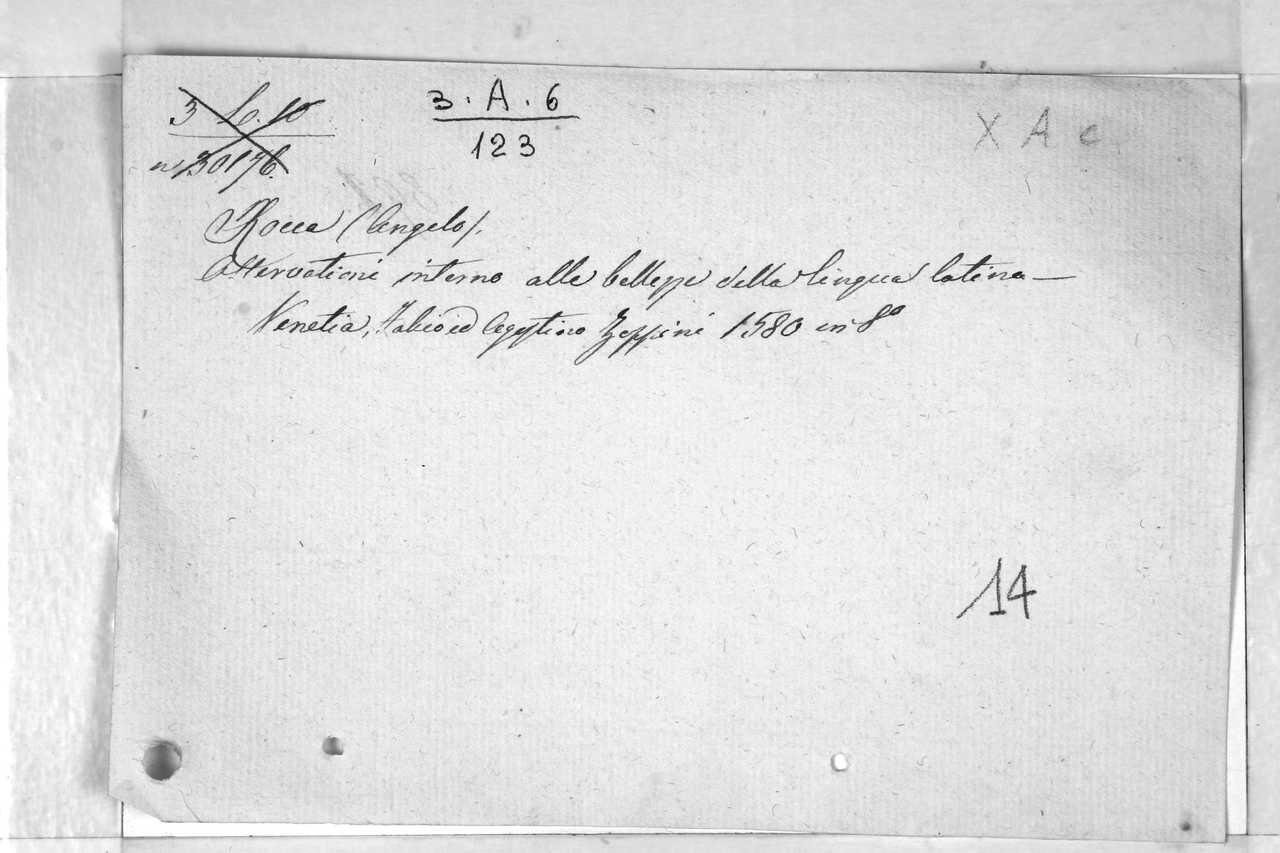 3 L. 10
n° 30176.
3 . A . 6
123
X A c
Rocca (Angelo).
Osservationi intorno alle bellezze della lingua latina —
Venetia, Fabio ed Agostino Zoppini 1580 in 8°
14